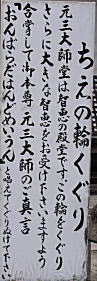 ちえの輪くぐり
元三大師堂は智恵の殿堂です。この輪をくぐり
さらに大きな智恵をお受け下さいますよう
合掌して御本尊元三大師のご真言
「おんばらだはんどめいうん」と唱えてくぐりぬけて下さい